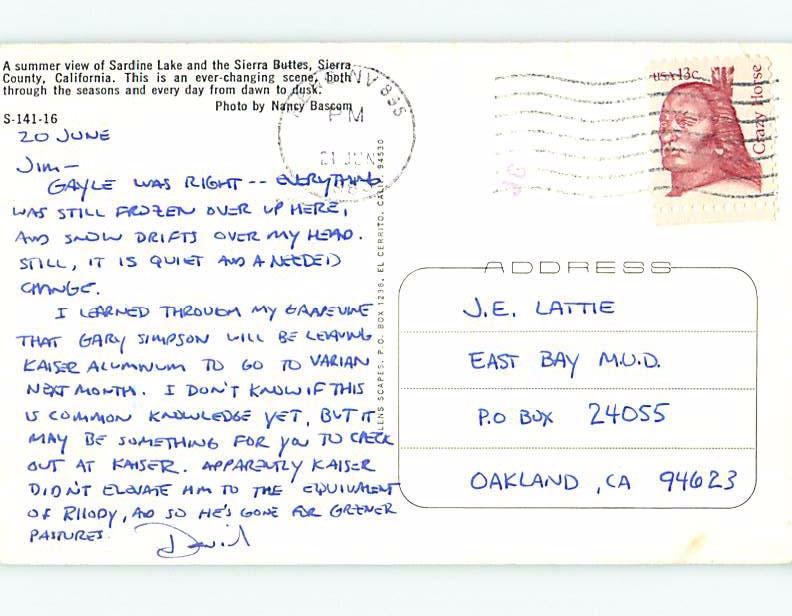 A summer view of Sardine Lake and the Sierra Buttes, Sierra
County, California. This is an ever-changing scene, both
through the seasons and every day from dawn to dusk.
Photo by Nancy Bascom
S-141-16
20 JUNE
JIM—
GAYLE WAS RIGHT -- EVERYTHING
WAS STILL FROZEN OVER UP HERE,
AND SNOW DRIFTS OVER MY HEAD.
STILL, IT IS QUIET AND A NEEDED
CHANGE.
I LEARNED THROUGH MY GRAPEVINE
THAT GARY SIMPSON WILL BE LEAVING
KAISER ALUMINUM TO GO TO VARIAN
NEXT MONTH. I DON'T KNOW IF THIS
IS COMMON KNOWLEDGE YET, BUT IT
MAY BE SOMETHING FOR YOU TO CHECK
OUT AT KAISER. APPARENTLY KAISER
DIDN'T ELEVATE HIM TO THE EQUIVALENT
OF RHODY, AND SO HE'S GONE FOR GREENER
PASTURES.
David
LENS SCAPES, P.O. BOX 1238, EL CERRITO, CALIF. 94530
NV 895
PM
21 JUN
USA 13c
Crazy Horse
ADDRESS
J.E. LATTIE
EAST BAY M.U.D.
P.O BOX 24055
OAKLAND, CA 94623